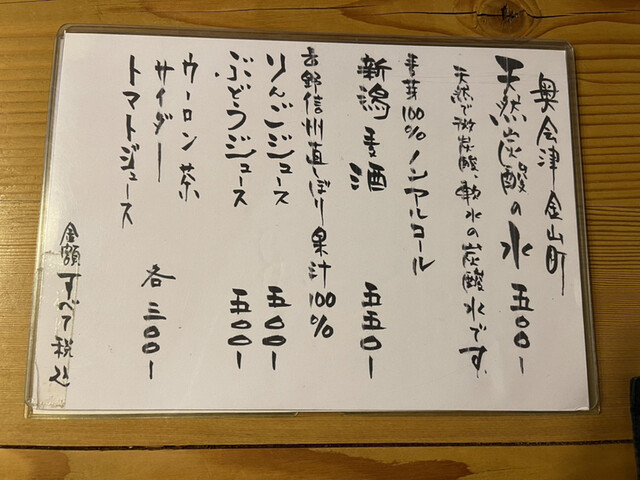 奥会津金山町
天然炭酸の水 五〇〇ー
天然で微炭酸、軟水の炭酸水です。
麦芽100%ノンアルコール
新潟麦酒 五五〇ー
長野信州直しぼり果汁100%
りんごジュース 五〇〇ー
ぶどうジュース 五〇〇ー
ウーロン茶
サイダー
トマトジュース 各三〇〇ー
金額すべて税込